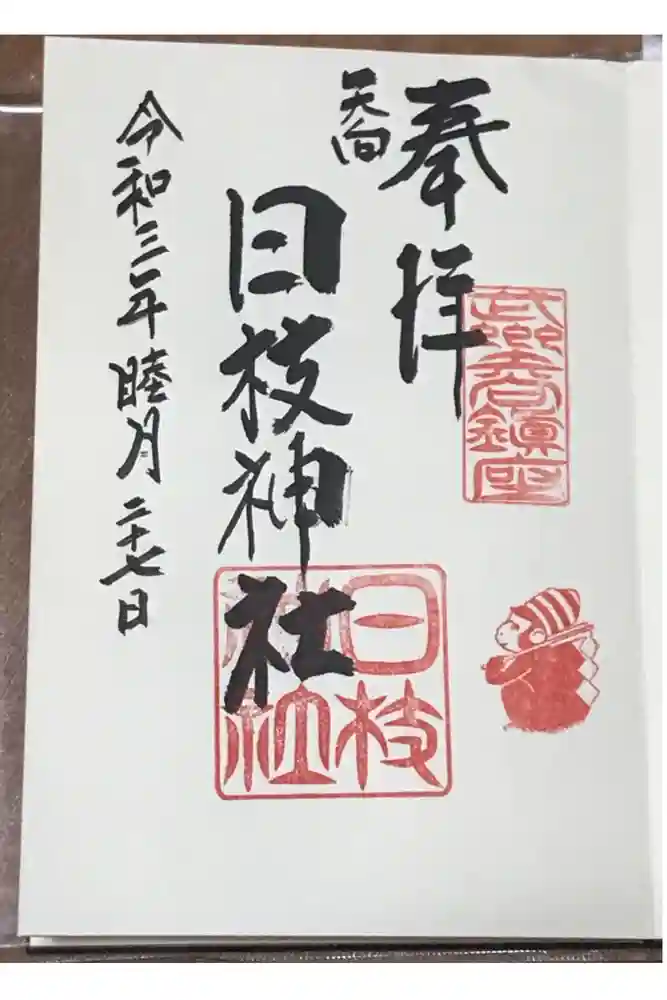 奉拝
日枝神社
令和三年睦月二十七日
日枝
神社